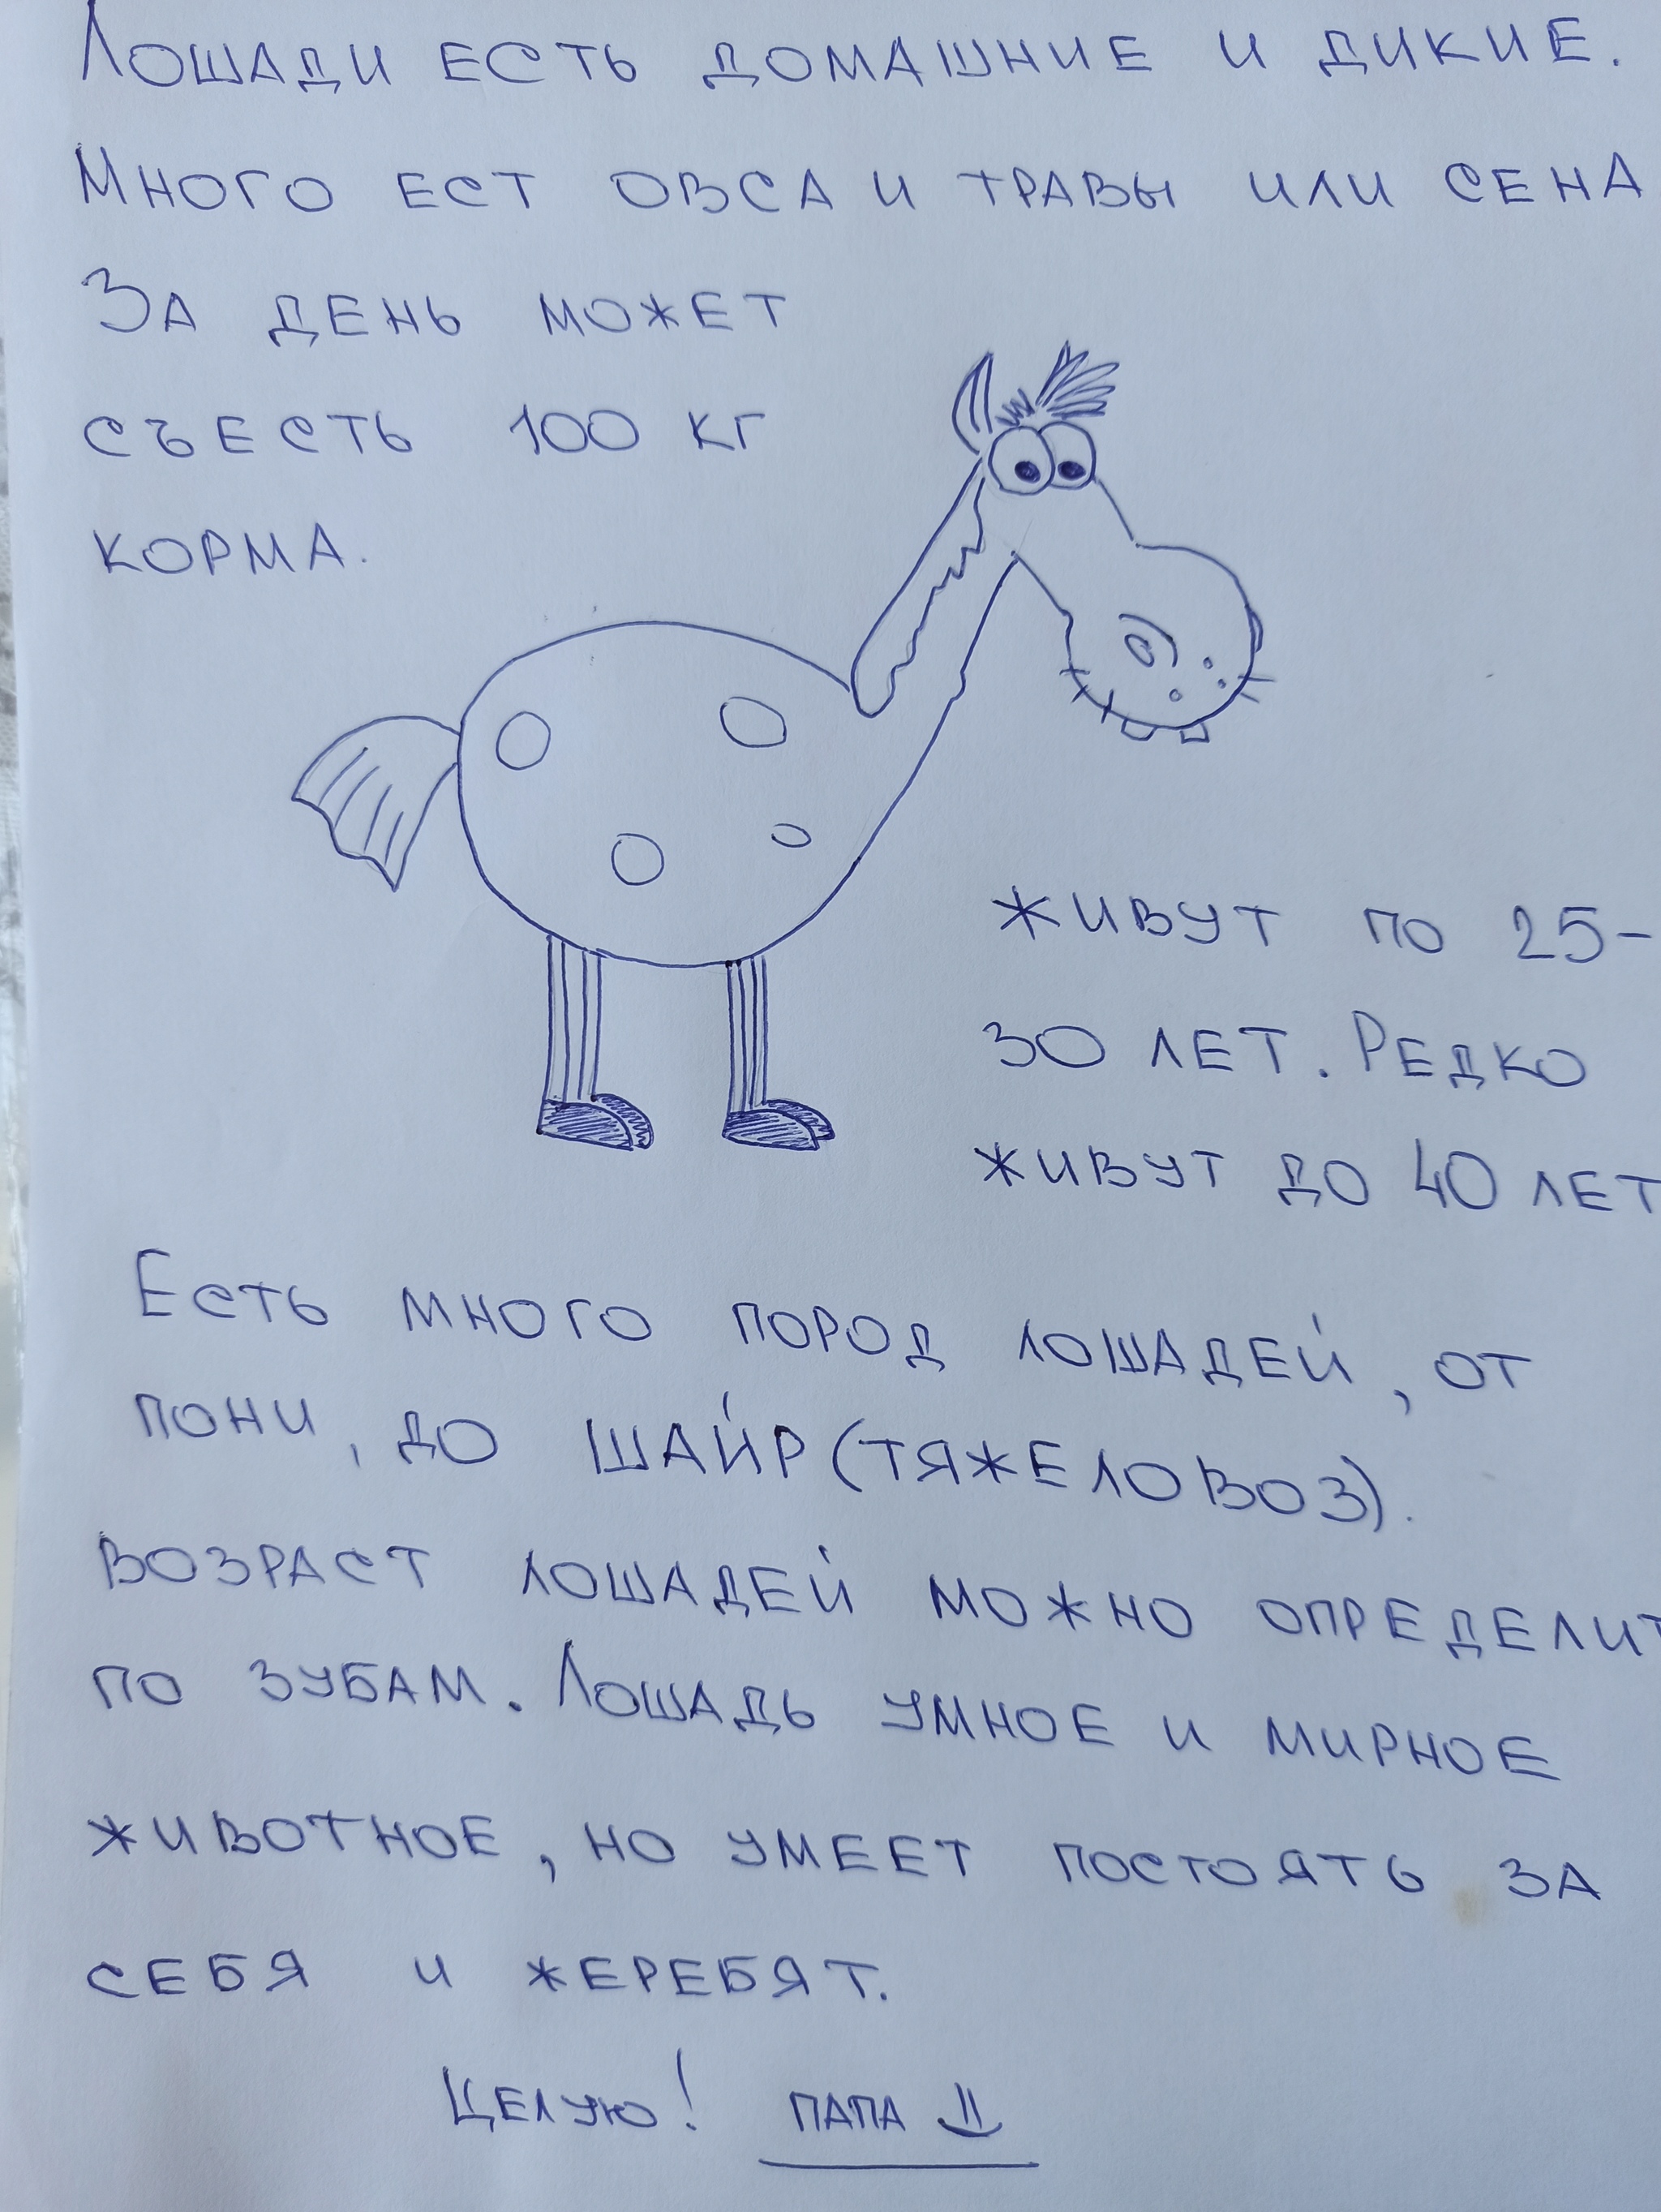 Лошади есть домашние и дикие.
Много ест овса и травы или сена
За день может
съесть 100 кг
корма.
живут по 25-
30 лет. Редко
живут до 40 лет
Есть много пород лошадей, от
пони, до шайр (тяжеловоз).
возраст лошадей можно определит
по зубам. Лошадь умное и мирное
животное, но умеет постоять за
себя и жеребят.
Целую! папа